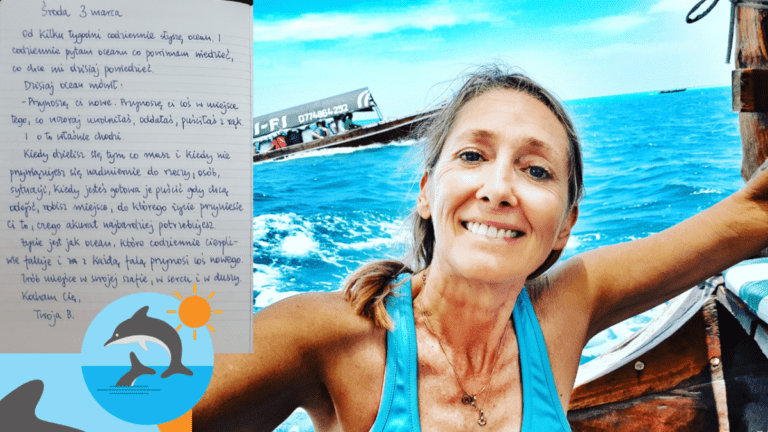 Środa 3 marca
Od kilku tygodni codziennie słyszę ocean. I
codziennie pytam oceanu co powinnam wiedzieć,
co chce mi dzisiaj powiedzieć.
Dzisiaj ocean mówi:
- Przynoszę ci nowe. Przynoszę ci coś w miejsce
tego, co wczoraj uwolniłaś, oddałaś, puściłaś z rąk
I o to właśnie chodzi.
Kiedy dzielisz się tym co masz i kiedy nie
przywiązujesz się nadmiernie do rzeczy, osób,
sytuacji, kiedy jesteś gotowa je puścić gdy chcą
odejść, robisz miejsce, do którego życie przyniesie
Ci to, czego akurat najbardziej potrzebujesz.
Życie jest jak ocean, które codziennie cierpli-
wie faluje i z każdą falą przynosi coś nowego.
Zrób miejsce w swojej szafie, w sercu i w duszy.
Kocham Cię,
Twoja B.
I-FI